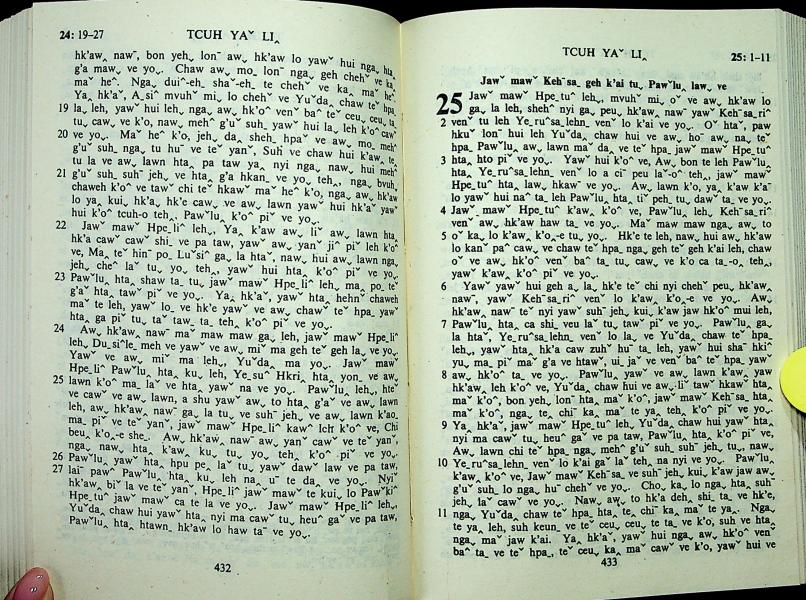 24: 19–27 TCUH YAˇ LI‸
hk'aw‸ nawˉ, bon yeh˯ lonˉ aw˯ hk'aw lo yawˇ hui nga˯ hta˯
g'a maw˯ ve yo˯.  Chaw aw˯ mo˯ lonˉ nga˯ geh chehˇ ve ka‸
maˇ heˆ.  Nga˯ duiˆ-eh˯ shaˇ-eh˯ te chehˇ ve ka‸ maˇ heˆ.
Ya‸ hk'aˇ, A˯siˆ mvuhˇ mi˯ lo chehˇ ve Yuˇda‸ chawˇ te hpa˯
19 la˯ leh, yawˇ hui leh˯ nga˯ aw˯ hk'oˆ venˇ baˆ teˇ ceu˯ ceu˯ ta˯
tu˯ caw˯ ve k'o, naw˯ mehˆ g'uˇ suh˯ yawˇ hui la˯ leh k'oˆ cawˇ
20 ve yo˯.  Maˇ heˆ k'o, jeh˯ da˯ sheh˯ hpaˇ ve aw˯ mo˯ mehˆ
g'uˇ suh˯ nga˯ tu huˉ ve teˇ yanˇ, Suhˉ ve chaw hui k'aw‸ te˯
tu la ve aw˯ lawn hta‸ pa taw ya˯ nyi nga˯ naw˯ hui mehˆ
21 g'uˇ suh˯ suhˇ jeh˯ ve hta‸ g'a hkan˯ ve yo teh‸, nga˯ bvuh˯
chaweh k'oˆ ve tawˇ chi teˇ hkawˇ maˇ heˆ k'o, nga˯ aw˯ hk'aw
lo ya˯ kui˯ hk'a˯ hk'e cawˇ ve aw˯ lawn yawˇ hui hk'aˇ yawˇ
hui k'oˆ tcuh-o teh˯ Pawˇlu‸ k'oˆ piˇ ve yo˯.
22 Jawˇ mawˇ Hpe˯liˆ leh˯, Ya‸ k'aw aw˯ liˇ aw˯ lawn hta˯
hk'a cawˇ cawˇ shi˯ ve pa taw, yawˇ aw˯ yanˇ jiˆ piˇ leh k'oˆ
ve, Ma˯ teˇ hinˉ po˯ Luˇsiˆ ga˯ la htaˇ, naw˯ hui aw˯ lawn nga˯
jeh˯ cheˆ laˇ tu˯ yo˯ teh‸, yawˇ hui hta‸ k'oˆ piˇ ve yo˯.
23 Pawˇlu‸ hta shaw ta˯ tu˯ jawˇ mawˇ Hpe˯liˆ leh˯ ma˯ po˯ teˇ
g'aˇ hta˯ tawˇ piˇ ve yo˯.  Ya‸ hk'aˇ, yawˇ hta‸ hehnˇ chaweh
maˇ te leh, yawˇ lo˯ ve hk'e yawˇ ve aw˯ chawˇ teˇ hpa˯ yawˇ
hta‸ ga piˇ tu˯ taˇ taw˯ ta teh‸ k'oˆ piˇ ve yo˯.
24 Aw˯ hk'aw‸ nawˉ maˇ maw maw ga˯ leh, jawˇ mawˇ Hpe˯liˆ
leh˯ Du˯siˆle˯ meh ve yawˇ ve aw˯ miˇ ma geh teˇ geh la˯ ve yo˯.
Yawˇ ve aw˯ miˇ ma˯ leh˯ Yuˇda‸ ma yo˯.  Jawˇ mawˇ
Hpe˯liˆ Pawˇlu‸ hta‸ ku˯ leh, Ye˯suˆ Hkri˯ hta‸ yon˯ ve aw˯
25 lawn k'oˆ ma˯ laˇ ve hta‸ yawˇ na ve yo˯.  Pawˇlu‸ leh˯, hteˇ
ve cawˇ ve aw˯ lawn, a shu yawˇ aw˯ to hta‸ g'aˇ ve aw˯ lawn
leh, aw˯ hk'aw‸ nawˉ ga˯ la tu˯ ve suhˉ jeh˯ ve aw˯ lawn k'ao˯
ma˯ piˇ ve teˇ yanˇ, jawˇ mawˇ Hpe˯liˆ kawˆ leh k'oˆ ve, Chi
beu‸ k'o˯-e she˯.  Aw˯ hk'aw‸ nawˉ aw˯ yanˇ cawˇ ve teˇ yanˇ,
nga˯ naw˯ hta‸ k'aw‸ ku˯ tu˯ yo˯ teh‸ k'oˆ piˇ ve yo˯.
26 Pawˇlu‸ yawˇ hta‸ hpu pe˯ laˇ tu˯ yawˇ dawˇ law ve pa taw,
27 laiˉ pawˇ Pawˇlu‸ hta‸ ku˯ leh na˯ uˉ te da‸ ve yo˯.  Nyiˇ
hk'aw‸ biˇ la ve teˇ yanˇ, Hpe˯liˆ jawˇ mawˇ te kui˯ lo Pawˇkiˇ
Hpe˯tuˆ jawˇ mawˇ ca te la ve yo˯.  Jawˇ mawˇ Hpe˯liˆ leh˯,
Yuˇda‸ chaw hui yawˇ hta‸ nyi ma cawˇ tu˯ heuˆ gaˇ ve pa taw,
Pawˇlu‸ hta‸ htawn˯ hk'aw lo haw taˇ ve yo˯.
432
TCUH YAˇ LI‸ 25: 1–11
Jawˇ mawˇ Kehˉsa˯ geh k'ai tu˯ Pawˇlu‸ law˯ ve
25 Jawˇ mawˇ Hpe˯tuˆ leh˯, mvuhˇ mi˯ oˇ ve aw˯ hk'aw lo
ga˯ la leh, shehˆ nyi ga˯ peu˯ hk'aw‸ nawˇ yawˇ Kehˉsa˯riˆ
2 venˇ tu leh Ye˯ruˆsa˯lehn˯ venˇ lo k'ai ve yo˯.  Oˇ htaˇ, paw
hkuˇ lonˉ hui leh Yuˇda‸ chaw hui ve aw˯ hoˉ aw˯ na˯ teˇ
hpa˯ Pawˇlu‸ aw˯ lawn maˇ da˯ ve teˇ hpa˯ jawˇ mawˇ Hpe˯tuˆ
3 hta‸ hto piˇ ve yo˯.  Yawˇ hui k'oˆ ve, Aw˯ bon te leh Pawˇlu‸
hta‸ Ye˯ruˆsa˯lehn˯ venˇ lo a ciˇ peu laˇ-oˆ teh‸, jawˇ mawˇ
Hpe˯tuˆ hta‸ law˯ hkawˇ ve yo˯.  Aw˯ lawn k'o˯ ya‸ k'aw k'aˇ
lo yawˇ hui naˆ ta˯ leh Pawˇlu‸ hta‸ tiˇ peh˯ tu˯ dawˇ ta˯ ve yo˯.
4 Jawˇ mawˇ Hpe˯tuˆ k'aw‸ k'oˆ ve, Pawˇlu‸ leh˯ Kehˉsa˯riˆ
venˇ aw˯ hk'aw haw ta˯ ve yo˯.  Maˇ maw maw nga˯ aw˯ to
5 oˇ ka˯ lo k'aw‸ k'o‸-e tu˯ yo˯.  Hk'eˇ te leh, naw˯ hui aw˯ hk'aw
lo kanˇ paˆ caw˯ ve chaw teˇ hpa˯ nga˯ geh teˇ geh k'ai leh, chaw
oˇ ve aw˯ hk'oˆ venˇ baˆ ta˯ tu˯ caw˯ ve k'o ca ta˯-o˯ teh‸,
yawˇ k'aw‸ k'oˆ piˇ ve yo˯.
6 Yawˇ yawˇ hui geh a˯ la˯ hk'e teˇ chi nyi chehˇ peu˯ hk'aw‸
nawˉ, yawˇ Kehˉsa˯riˆ venˇ lo k'aw‸ k'o‸-e ve yo˯.  Aw˯
hk'aw‸ nawˉ teˇ nyi yawˇ suhˉ jeh˯ kui˯ k'aw jaw hk'oˆ mui leh,
7 Pawˇlu‸ hta‸ ca shi˯ veu laˇ tu˯ tawˇ piˇ ve yo˯.  Pawˇlu‸ ga˯
la htaˇ, Ye˯ruˆsa˯lehn˯ venˇ lo la˯ ve Yuˇda‸ chaw teˇ hpa˯
leh˯, yawˇ hta‸ hk'a caw zuhˇ huˉ ta˯ leh, yawˇ hui shaˉ hkiˆ
yu˯ ma˯ piˇ maˇ g'a ve htawˇ˯ ui˯ jaˇ ve venˇ baˆ teˇ hpa˯ yawˇ
8 aw˯ hk'oˆ ta˯ ve yo˯.  Pawˇlu‸ yawˇ ve aw˯ lawn k'aw‸ yaw
hk'aw‸ leh k'oˆ ve, Yuˇda‸ chaw hui ve aw˯ liˇ tawˇ hkaw hta‸
maˇ k'oˆ, bon˯ yeh˯ lonˉ hta‸ maˇ k'oˆ, jawˇ mawˇ Kehˉsa˯ hta‸
maˇ k'oˆ, nga˯ te‸ chiˉ ka‸ maˇ te ya˯ teh‸ k'oˆ piˇ ve yo˯.
9 Ya‸ hk'aˇ, jawˇ mawˇ Hpe˯tuˆ leh˯ Yuˇda‸ chaw hui yawˇ hta‸
nyi ma cawˇ tu˯ heuˆ gaˇ ve pa taw, Pawˇlu‸ hta‸ k'oˆ piˇ ve,
Aw˯ lawn chi teˇ hpa˯ nga˯ mehˆ g'uˇ suh˯ suhˉ jeh˯ tu˯ naw˯
10 Ye˯ruˆsa˯lehn˯ venˇ lo k'ai gaˇ laˇ teh˯ na nyi ve yo˯.  Pawˇlu‸
k'aw‸ k'oˆ ve, Jawˇ mawˇ Kehˉsa˯ ve suhˉ jeh˯ kui˯ k'aw jaw aw˯
g'uˇ suh˯ lo nga˯ huˉ chehˇ ve yo˯.  Cho˯ ka˯ lo nga˯ hta‸ suhˉ
jeh˯ laˇ cawˇ ve yo˯.  Naw˯ aw˯ to hk'a deh˯ shi˯ ta˯ ve hk'e,
11 nga˯ Yuˇda‸ chaw teˇ hpa˯ hta‸ te‸ chiˉ ka‸ maˇ te ya˯.  Nga˯
te ya˯ leh, suh keun˯ ve teˇ ceu˯ ceu˯ te ta˯ ve k'o, suh ve hta‸
nga˯ maˇ jaw k'ai.  Ya‸ hk'aˇ, yawˇ hui nga˯ aw˯ hk'oˆ venˇ
baˆ ta˯ ve teˇ hpa˯ teˇ ceu˯ ka‸ maˇ cawˇ ve k'o, yawˇ hui ve
433